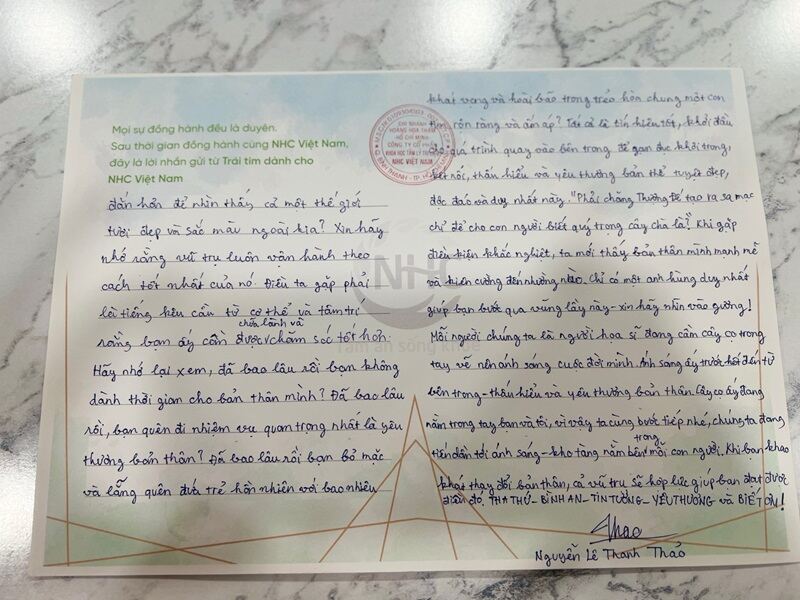 Mọi sự đồng hành đều là duyên.
Sau thời gian đồng hành cùng NHC Việt Nam,
đây là lời nhắn gửi từ Trái tim dành cho
NHC Việt Nam
đắn hơn để nhìn thấy cả một thế giới
tươi đẹp và sắc màu ngoài kia? Xin hãy
nhớ rằng vũ trụ luôn vận hành theo
cách tốt nhất của nó. Điều ta gặp phải
là tiếng kêu cần từ cơ thể và tâm trí
rằng bạn ấy cần được chữa lành và chăm sóc tốt hơn.
Hãy nhớ lại xem, đã bao lâu rồi bạn không
dành thời gian cho bản thân mình? Đã bao lâu
rồi, bạn quên đi nhiệm vụ quan trọng nhất là yêu
thương bản thân? Đã bao lâu rồi bạn bỏ mặc
và lãng quên đứa trẻ hồn nhiên với bao nhiêu
khát vọng và hoài bão trong trẻo hòa chung một con
tim rộn ràng và ấm áp? Tất cả là tín hiệu tốt, khởi đầu
cho quá trình quay vào bên trong để gạn đục khơi trong,
kết nối, thấu hiểu và yêu thương bản thể tuyệt đẹp,
độc đáo và duy nhất này. "Phải chăng Thượng Đế tạo ra sa mạc
chỉ để cho con người biết quý trọng cây chà là". Khi gặp
điều kiện khắc nghiệt, ta mới thấy bản thân mình mạnh mẽ
và kiên cường đến nhường nào. Chỉ có một anh hùng duy nhất
giúp bạn bước qua vũng lầy này - xin hãy nhìn vào gương!
Mỗi người chúng ta là người họa sĩ đang cầm cây cọ trong
tay vẽ nên ánh sáng cuộc đời mình. Ánh sáng ấy trước hết đến từ
bên trong - thấu hiểu và yêu thương bản thân. Cây cọ ấy đang
nằm trong tay bạn và tôi, vì vậy ta cùng bước tiếp nhé, chúng ta đang
tiến dần tới ánh sáng - kho tàng nằm bên trong mỗi con người. Khi bạn khao
khát thay đổi bản thân, cả vũ trụ sẽ hợp lực giúp bạn đạt được
điều đó. THA THỨ - BÌNH AN - TIN TƯỞNG - YÊU THƯƠNG và BIẾT ƠN!
Thao
Nguyễn Lê Thanh Thảo
CHI NHÁNH
HOÀNG HOA THÁM
HỒ CHÍ MINH
CÔNG TY CỔ PHẦN
KHOA HỌC TÂM LÝ TRỊ LIỆU
NHC VIỆT NAM
NHC
Tâm an sống khỏe